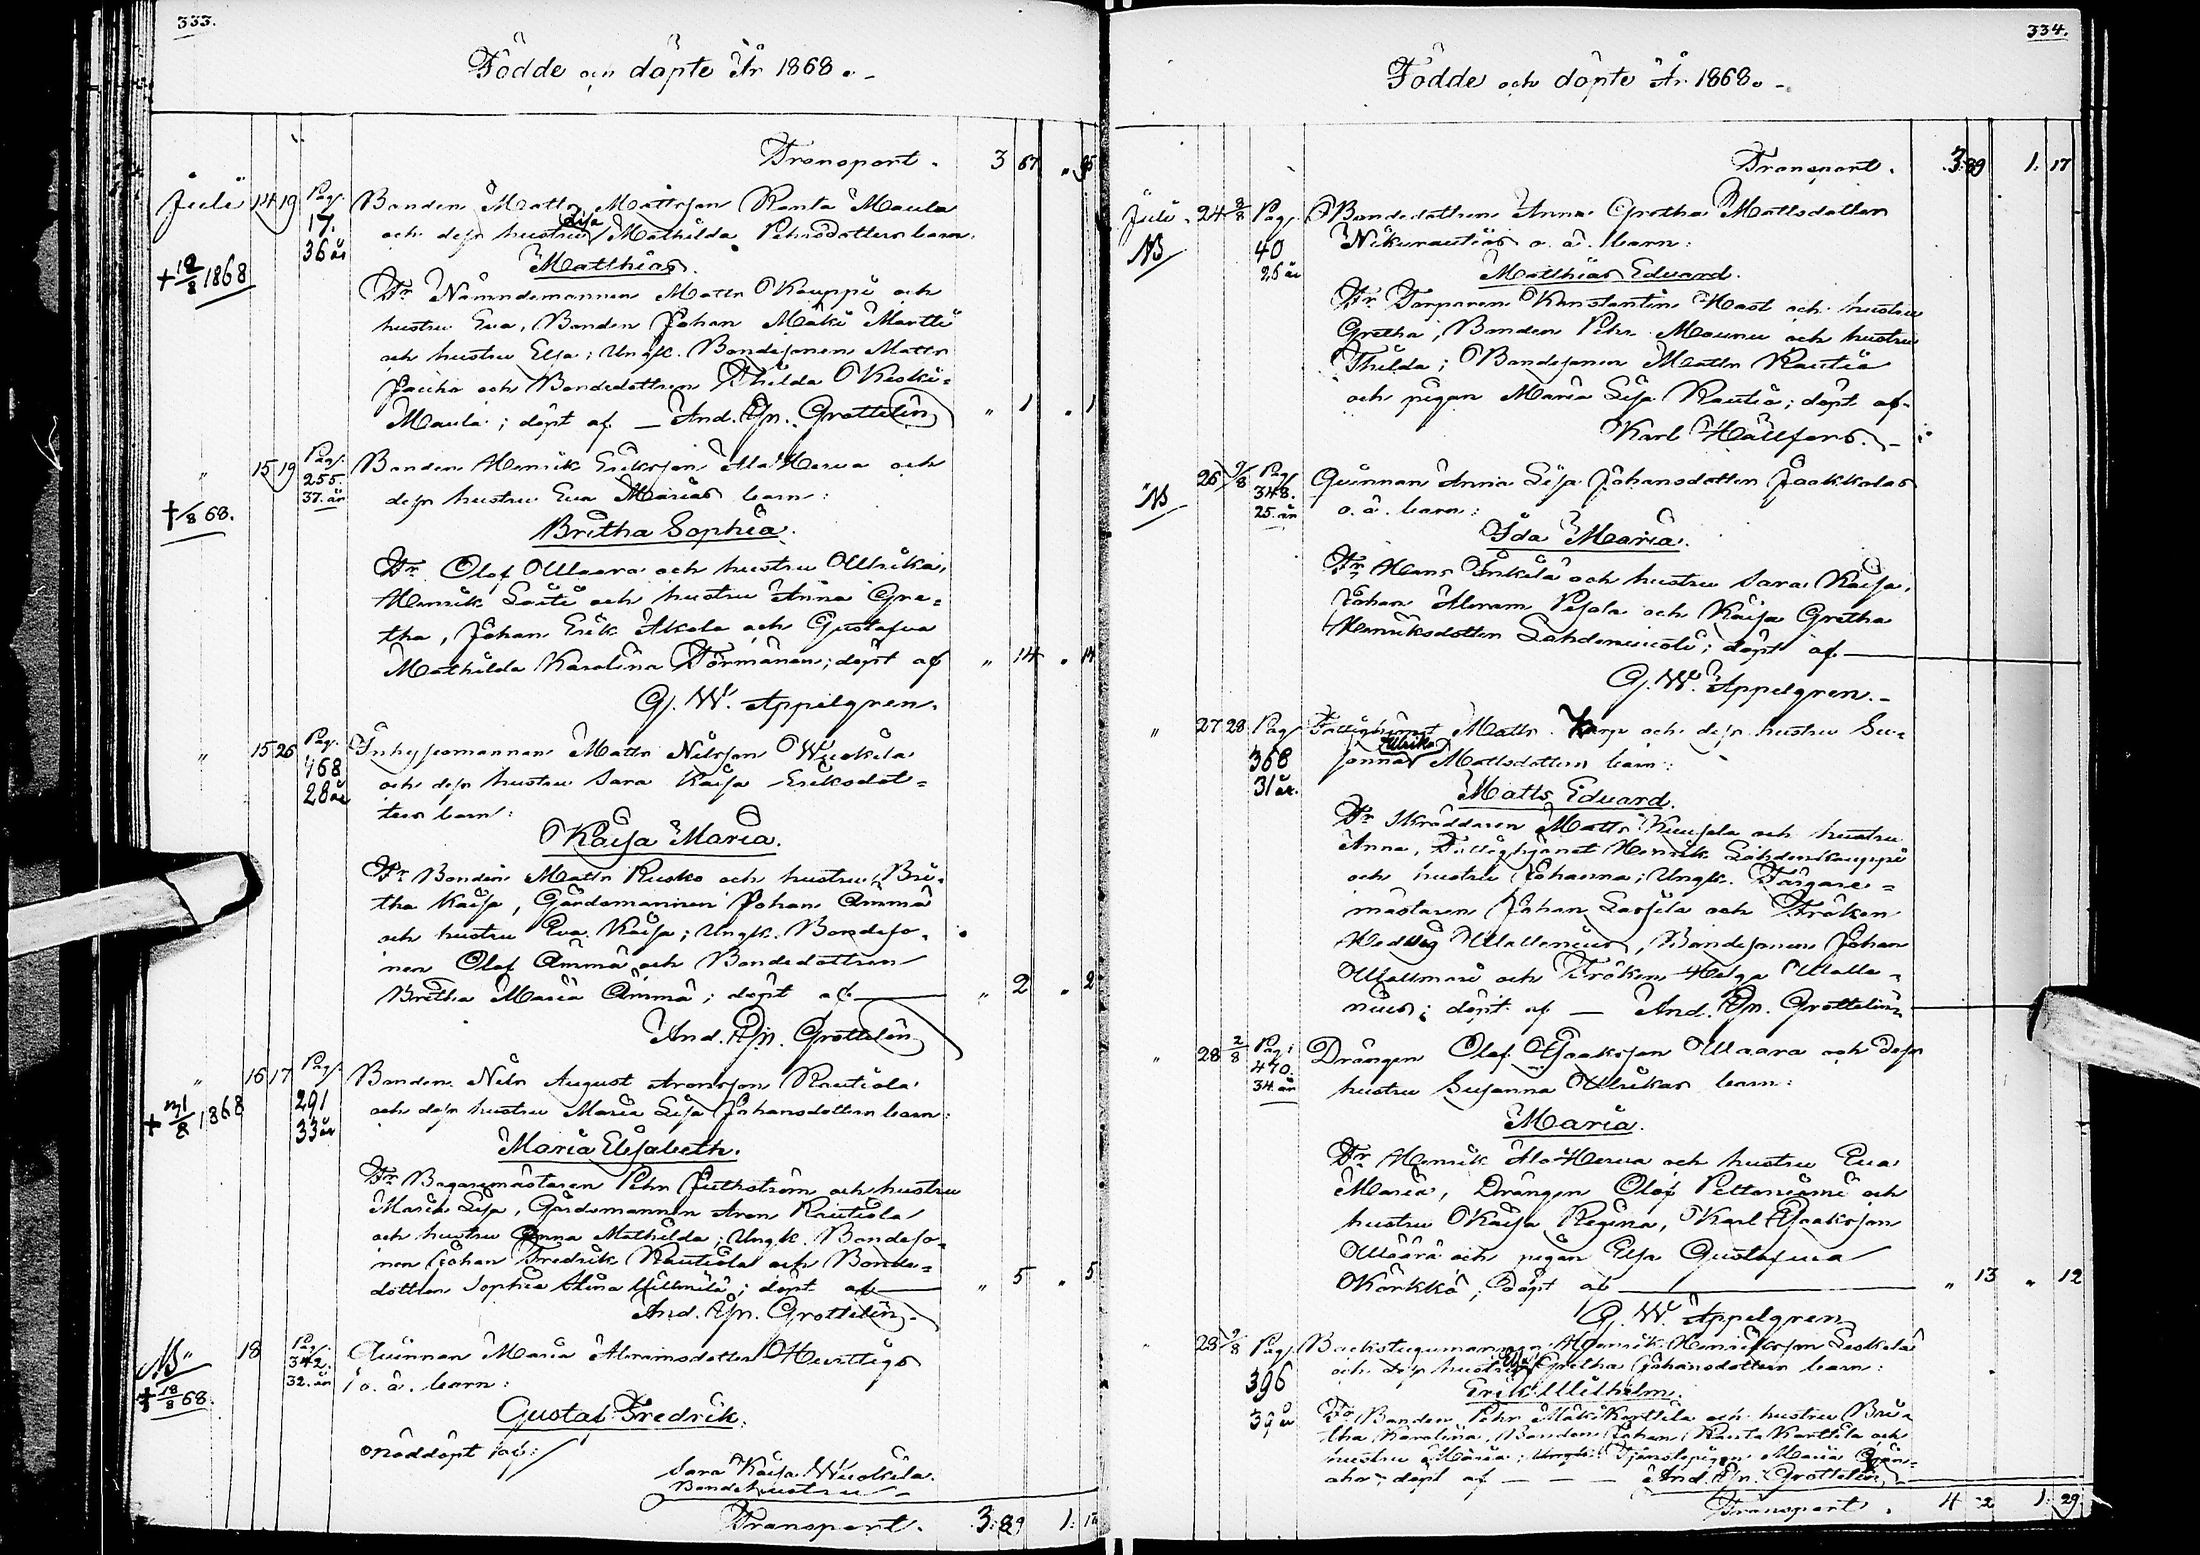 333.
Födde och döpte År 1868.
Transport. 3 67 " 95
Juli 14 19 Pag. Bonden Matts Mattsson Ranta Maula
17. och dess hustru Lisa Mathilda Pehrsdotters barn:
36 år
Matthias.
+ 12/8 1868
Fr. Nämndemannen Matts Kauppi och
hustru Eva, Bonden Johan Mäki Martti
och hustru Elsa; Ungk. Bondesonen Matts
Junka och Bondedottren Thilda Keski-
Maula; döpt af — And. Joh. Grottelin " 1 " 1
" 15 19 Pag. Bonden Henrik Eriksson Ala Herva och
255. dess hustru Eva Marias barn:
37. år
+ /8 68.
Britha Sophia.
Fr. Olof Waara och hustru Ulrika,
Henrik Soiti och hustru Anna Gre-
tha, Johan Erik Akola och Gustafva
Mathilda Karolina Törmänen; döpt af " 14 " 14
G. W. Appelgren.
" 15 26 Pag. Inhysesmannen Matts Nilsson Wuokila
468 och dess hustru Sara Kaisa Eriksdot-
28 år ters barn:
Kaisa Maria.
Fr. Bonden Matts Rusko och hustru Bri-
tha Kaisa, Gårdsmannen Johan Ämmä
och hustru Eva Kaisa; Ungk. Bondeso-
nen Olof Ämmä och Bondedottren
Britha Maria Ämmä; döpt af — " 2 " 2
And. Joh. Grottelin
" 16 17 Pag. Bonden Nils August Aronsson Rautiola
291 och dess hustru Maria Lisa Johansdotters barn:
33 år
+ 21/8 1868
Maria Elisabeth.
Fr. Bagaremästaren Pehr Juthström och hustru
Maria Lisa, Gårdsmannen Aron Rautiola
och hustru Anna Mathilda; Ungk. Bondeso-
nen Johan Fredrik Rautiola och Bonde-
dottren Sophia Alina; döpt af — " 5 " 5
And. Joh. Grottelin.
NB " 18 Pag. Qvinnan Maria Abramsdotter Hurttigs
342. o. ä. barn:
32. år
+ 18/8 68.
Gustaf Fredrik.
nöddöpt af:
Sara Kaisa Wuokila.
Bondehustru
Transport. 3: 89 1: 17
334.
Födde och döpte År 1868.
Transport. 3: 89 1: 17
Juli 24 2/8 Pag. Bondedottren Anna Gretha Mattsdotter
NB 40 Nikurautios o. ä. barn:
26 år
Matthias Eduard.
Fr. Torparen Konstantin Hast och hustru
Gretha, Bonden Pehr Maunu och hustru
Thilda; Bondesonen Matts Rautio
och pigan Maria Lisa Rautio; döpt af
Karl Hällfors.
" 26 9/8 Pag. Qvinnan Anna Lisa Johansdotter Jaakkolas
NB 348. o. ä. barn:
25. år
Ida Maria.
Fr. Hans Inkala och hustru Sara Kaisa,
Johan Abram Pesola och Kaisa Gretha
Henriksdotter Lahdenwoli; döpt af —
G. W. Appelgren.
" 27 28 Pag. Fattighjonet Matts Karp och dess hustru Su-
368 sanna Ulrika Mattsdotters barn:
31 år.
Matts Eduard.
Fr. Skräddaren Matts Kuusela och hustru
Anna, Fattighjonet Henrik Lahdenkauppi
och hustru Johanna; Ungk. Färgare-
mästaren Johan Sassila och Fröken
Hedvig Wallenius, Bondesonen Johan
Wallmari och Fröken Helga Walle-
nius; döpt af — And. Joh. Grottelin
" 28 2/8 Pag. Drängen Olof Isaksson Waara och dess
470. hustru Susanna Ulrikas barn:
34. år
Maria.
Fr. Henrik Ala-Herva och hustru Eva
Maria, Drängen Olof Peltoniemi och
hustru Kaisa Regina, Karl Isaksson
Waara och pigan Elsa Gustafva
Körkkö; döpt af — " 13 " 12
G. W. Appelgren
" 28 9/8 Pag. Backstugumannen Henrik Henriksson Leskelä
396 och dess hustru Elsa Gretha Johansdotters barn:
Erik Wilhelm.
39 år Fr. Bonden Pehr Mäki Karttila och hustru Bri-
tha Karolina, Bonden Johan Ranta Karttila och
hustru Maria; Ungk. Tjenstepigan Maria Ojan-
aho; döpt af — — — And. Joh. Grottelin
Transport. 4 2 1: 29